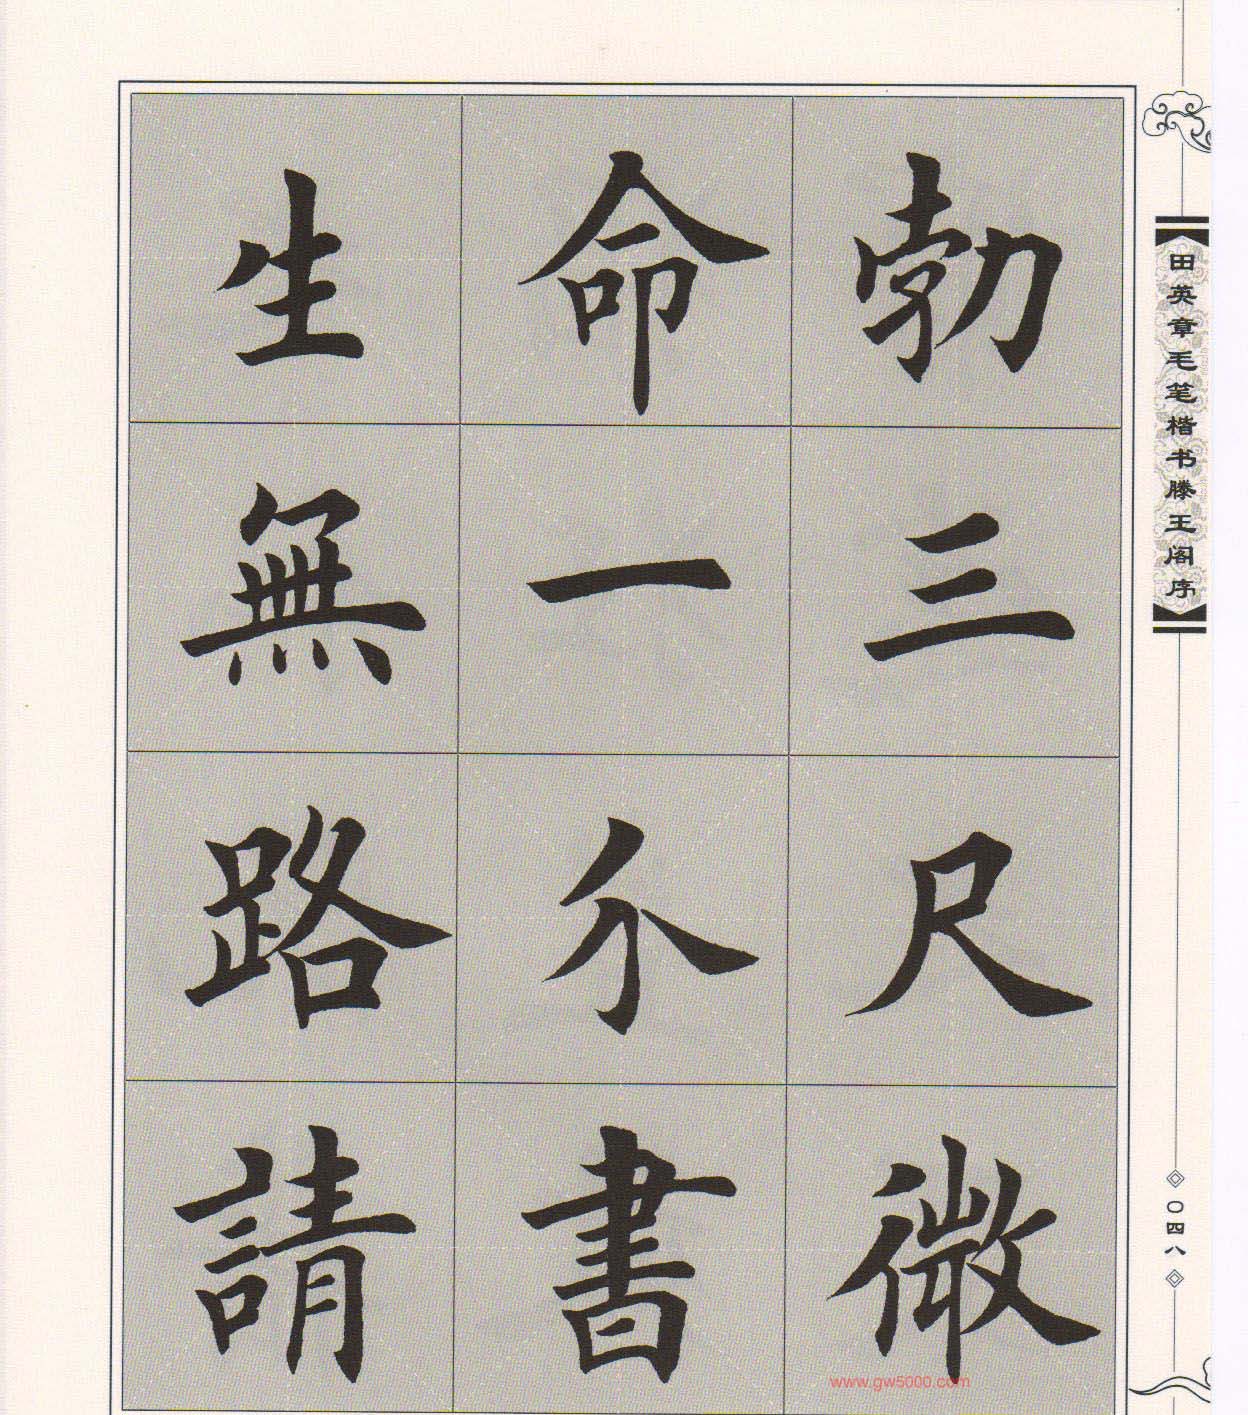 勃三尺微
命一介書
生無路請
田英章毛笔楷书滕王阁序
〇四八
www.gw5000.com